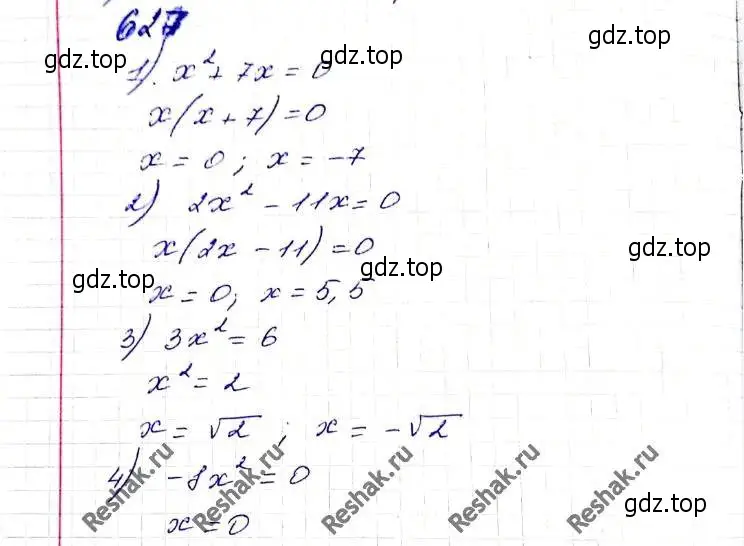 627
gdz.top
gdz.top
1) x² + 7x = 0
gdz.top
x(x + 7) = 0
x = 0; x = -7
2) 2x² - 11x = 0
x(2x - 11) = 0
gdz.top
gdz.top
gdz.top
x = 0; x = 5,5
3) 3x² = 6
gdz.top
x² = 2
x = √2; x = -√2
4) -8x² = 0
x = 0
Reshak.ru
Reshak.ru
Reshak.ru
Reshak.ru
gdz.top